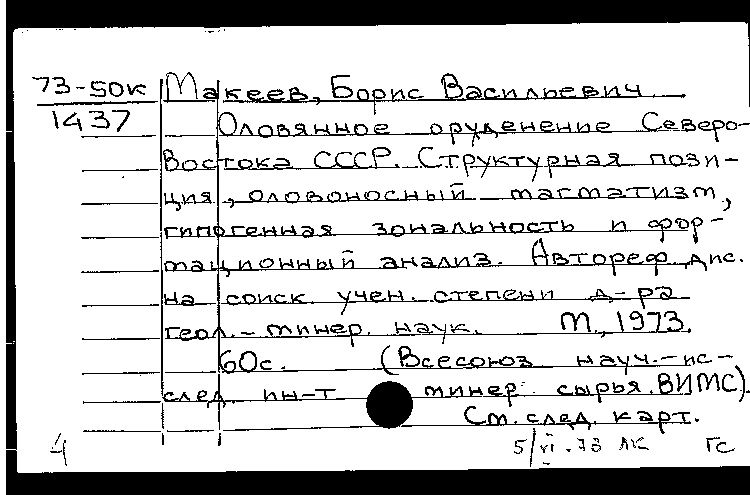 73-50к Макеев, Борис Васильевич
1437
Оловянное оруденение Северо-
Востока СССР. Структурная пози-
ция, оловоносный магматизм,
гипогенная зональность и фор-
мационный анализ. Автореф. дис.
на соиск. учен. степени д-ра
геол.-минер. наук. М., 1973.
60с. (Всесоюз науч.-ис-
след. ин-т минер. сырья. ВИМС).
См. след. карт.
4 5/VI.73 ЛК ГС